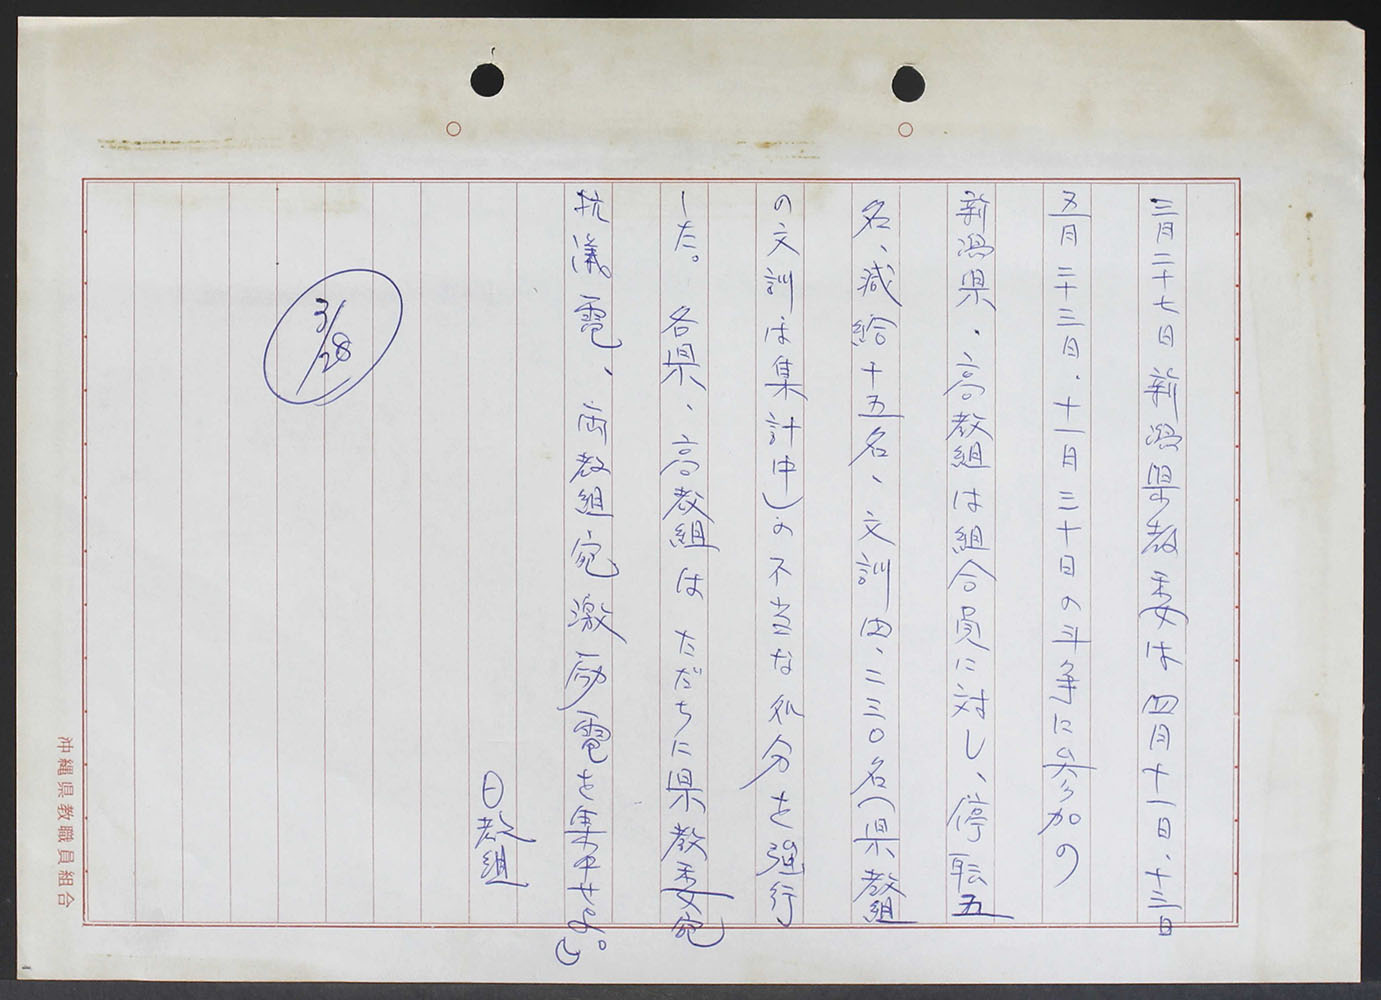 三月二十七日新潟県教委は四月十一日、十三日
五月二十三日、十一月三十日の斗争に参加の
新潟県、高教組は組合員に対し、停職五
名、減給十五名、文訓四、二三〇名（県教組
の文訓は集計中）の不当な処分を強行
した。各県、高教組はただちに県教委宛
抗議電、両教組宛激励電を集中せよ。」
日教組
3/28
沖縄県教職員組合